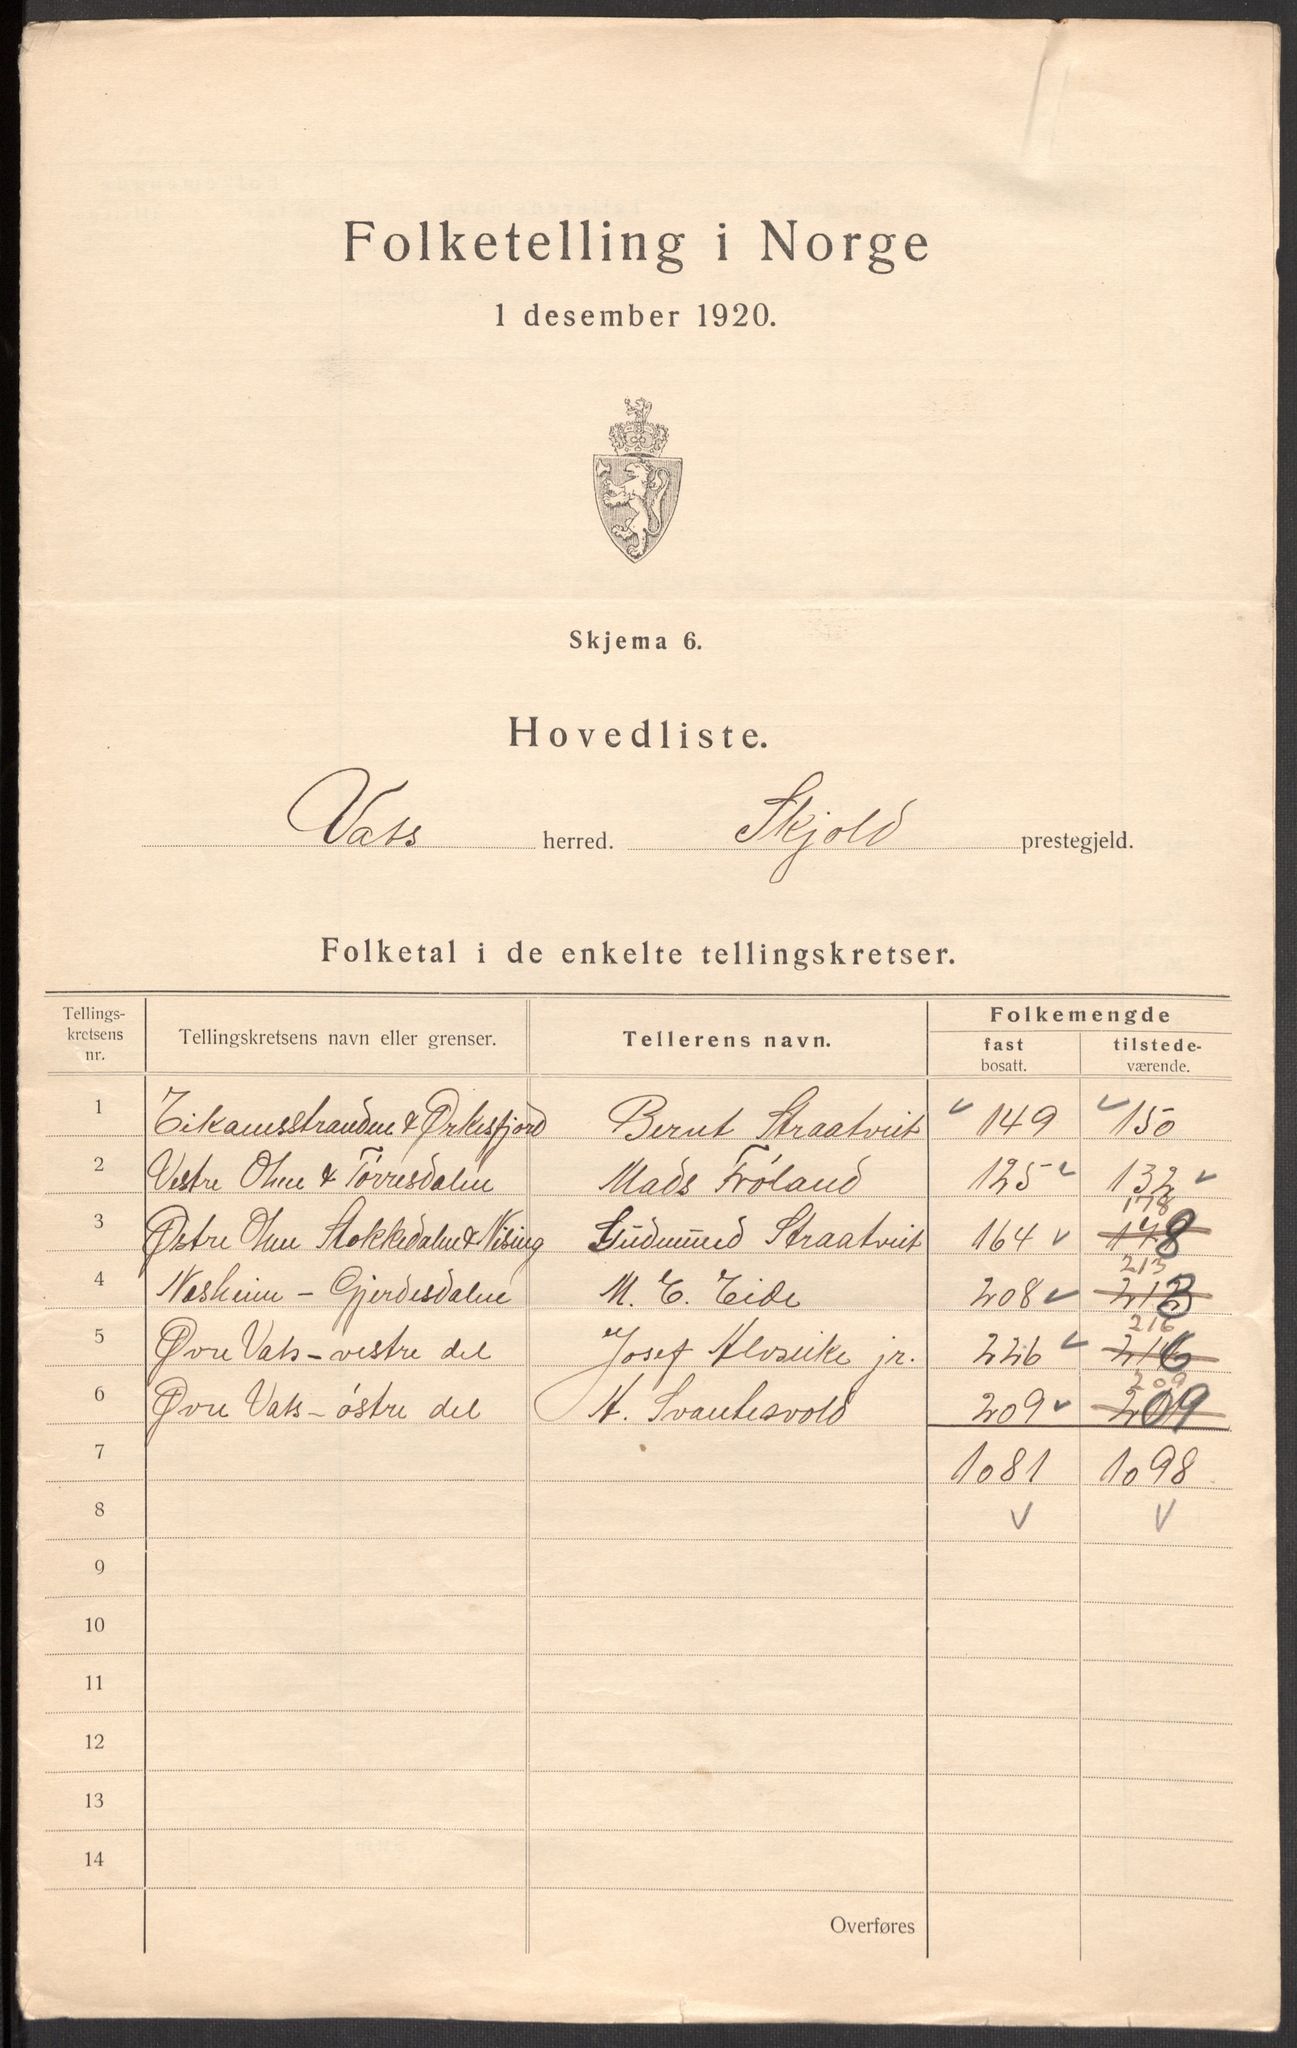 Folketelling i Norge
1 desember 1920.
Skjema 6.
Hovedliste.
Vats herred. Skjold prestegjeld.
Folketal i de enkelte tellingskretser.
Tellings-kretsens nr. Tellingskretsens navn eller grenser. Tellerens navn. Folkemengde
fast bosatt. tilstede-værende.
1 Eikanesstranden & Ørkesfjord Bernt Straatveit 149 150
2 Vestre Ølne & Tørresdalen Mads Frøland 125 132
178
3 Østre Ølne Stokkedalen & Vising Gudmund Straatveit 164 148
213
4 Nesheim - Gjerdesdalen M. E. Eide 208 213
216
5 Øvre Vats - vestre del Josef Alvseike jr. 226 216
209
6 Øvre Vats - østre del A. Svantesvold 209 209
7 1081 1098
8
9
10
11
12
13
14
Overføres